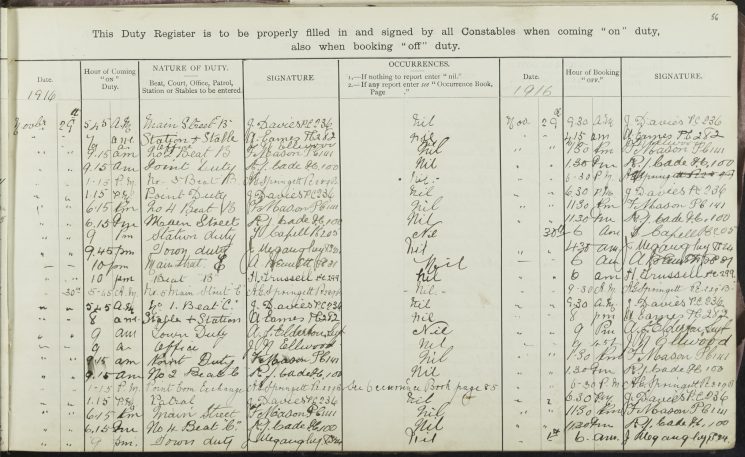 56
This Duty Register is to be properly filled in and signed by all Constables when coming "on" duty,
also when booking "off" duty.
Date. Hour of Coming "ON" Duty. NATURE OF DUTY. Beat, Court, Office, Patrol, Station or Stables to be entered. SIGNATURE OCCURRENCES. 1.—If nothing to report enter "nil." 2.—If any report enter see "Occurrence Book, Page " Date. Hour of Booking "OFF." SIGNATURE.
1916 1916
29 5.45 A.M. Main Street B J Davies PC 236 Nil Nov 29 9.30 A.M. J Davies PC 236
7 am Station & Stable A Eames PC 282 nil 4.15 am A Eames PC 282
Office Ellwood Nil Ellwood
9.15 am No 2 Beat B F Mason PC 141 Nil 1.30 Pm F Mason PC 141
9.15 Am Point Duty R.J. Cade 100 Nil 1.30 Pm R.J. Cade 100
1.15 P.M. No. 3 Beat B Springett Nil 6.30 P.M. Springett
1.15 PM Point Duty J Davies PC 236 Nil 6.30 PM J Davies PC 236
6.15 Pm No 4 Beat B F Mason PC 141 Nil 11.30 Pm F Mason PC 141
6.15 Pm Main Street R.J. Cade 100 Nil 11.30 Pm R.J. Cade 100
9 Pm Station duty Capell PC 205 Nil 30 6 Am Capell PC 205
9.45 pm Town duty J Megaughey Nil 4.30 am J Megaughey
10 pm Main Street Nil 6 am
10 pm Beat B H Trussell nil 6 am H Trussell
30 5.45 A.M. No. 3 Main Street C Springett Nil 9.30 A.M. Springett
5.45 A.M. No 1 Beat "C" J Davies PC 236 nil 9.30 A.M. J Davies PC 236
8 am Stable & Station A Eames PC 282 nil 8 pm A Eames PC 282
9 am Town Duty Elderton Nil 9 Pm Elderton
9 a Office Ellwood Nil Ellwood
9.15 am Point Duty F Mason PC 141 Nil 1.30 Pm F Mason PC 141
9.15 Am No 2 Beat C R.J. Cade 100 Nil 1.30 Pm R.J. Cade 100
1.15 P.M. Point Corn Exchange Springett See Occurrence Book page 85 6.30 P.M. Springett
1.15 PM Patrol J Davies PC 236 Nil 6.30 PM J Davies PC 236
6.15 Pm Main Street F Mason PC 141 Nil 11.30 Pm F Mason PC 141
6.15 Pm No 4 Beat "C" R.J. Cade 100 Nil 11.30 Pm R.J. Cade 100
9 pm. Town duty J Megaughey Nil 1st 6 am. J Megaughey